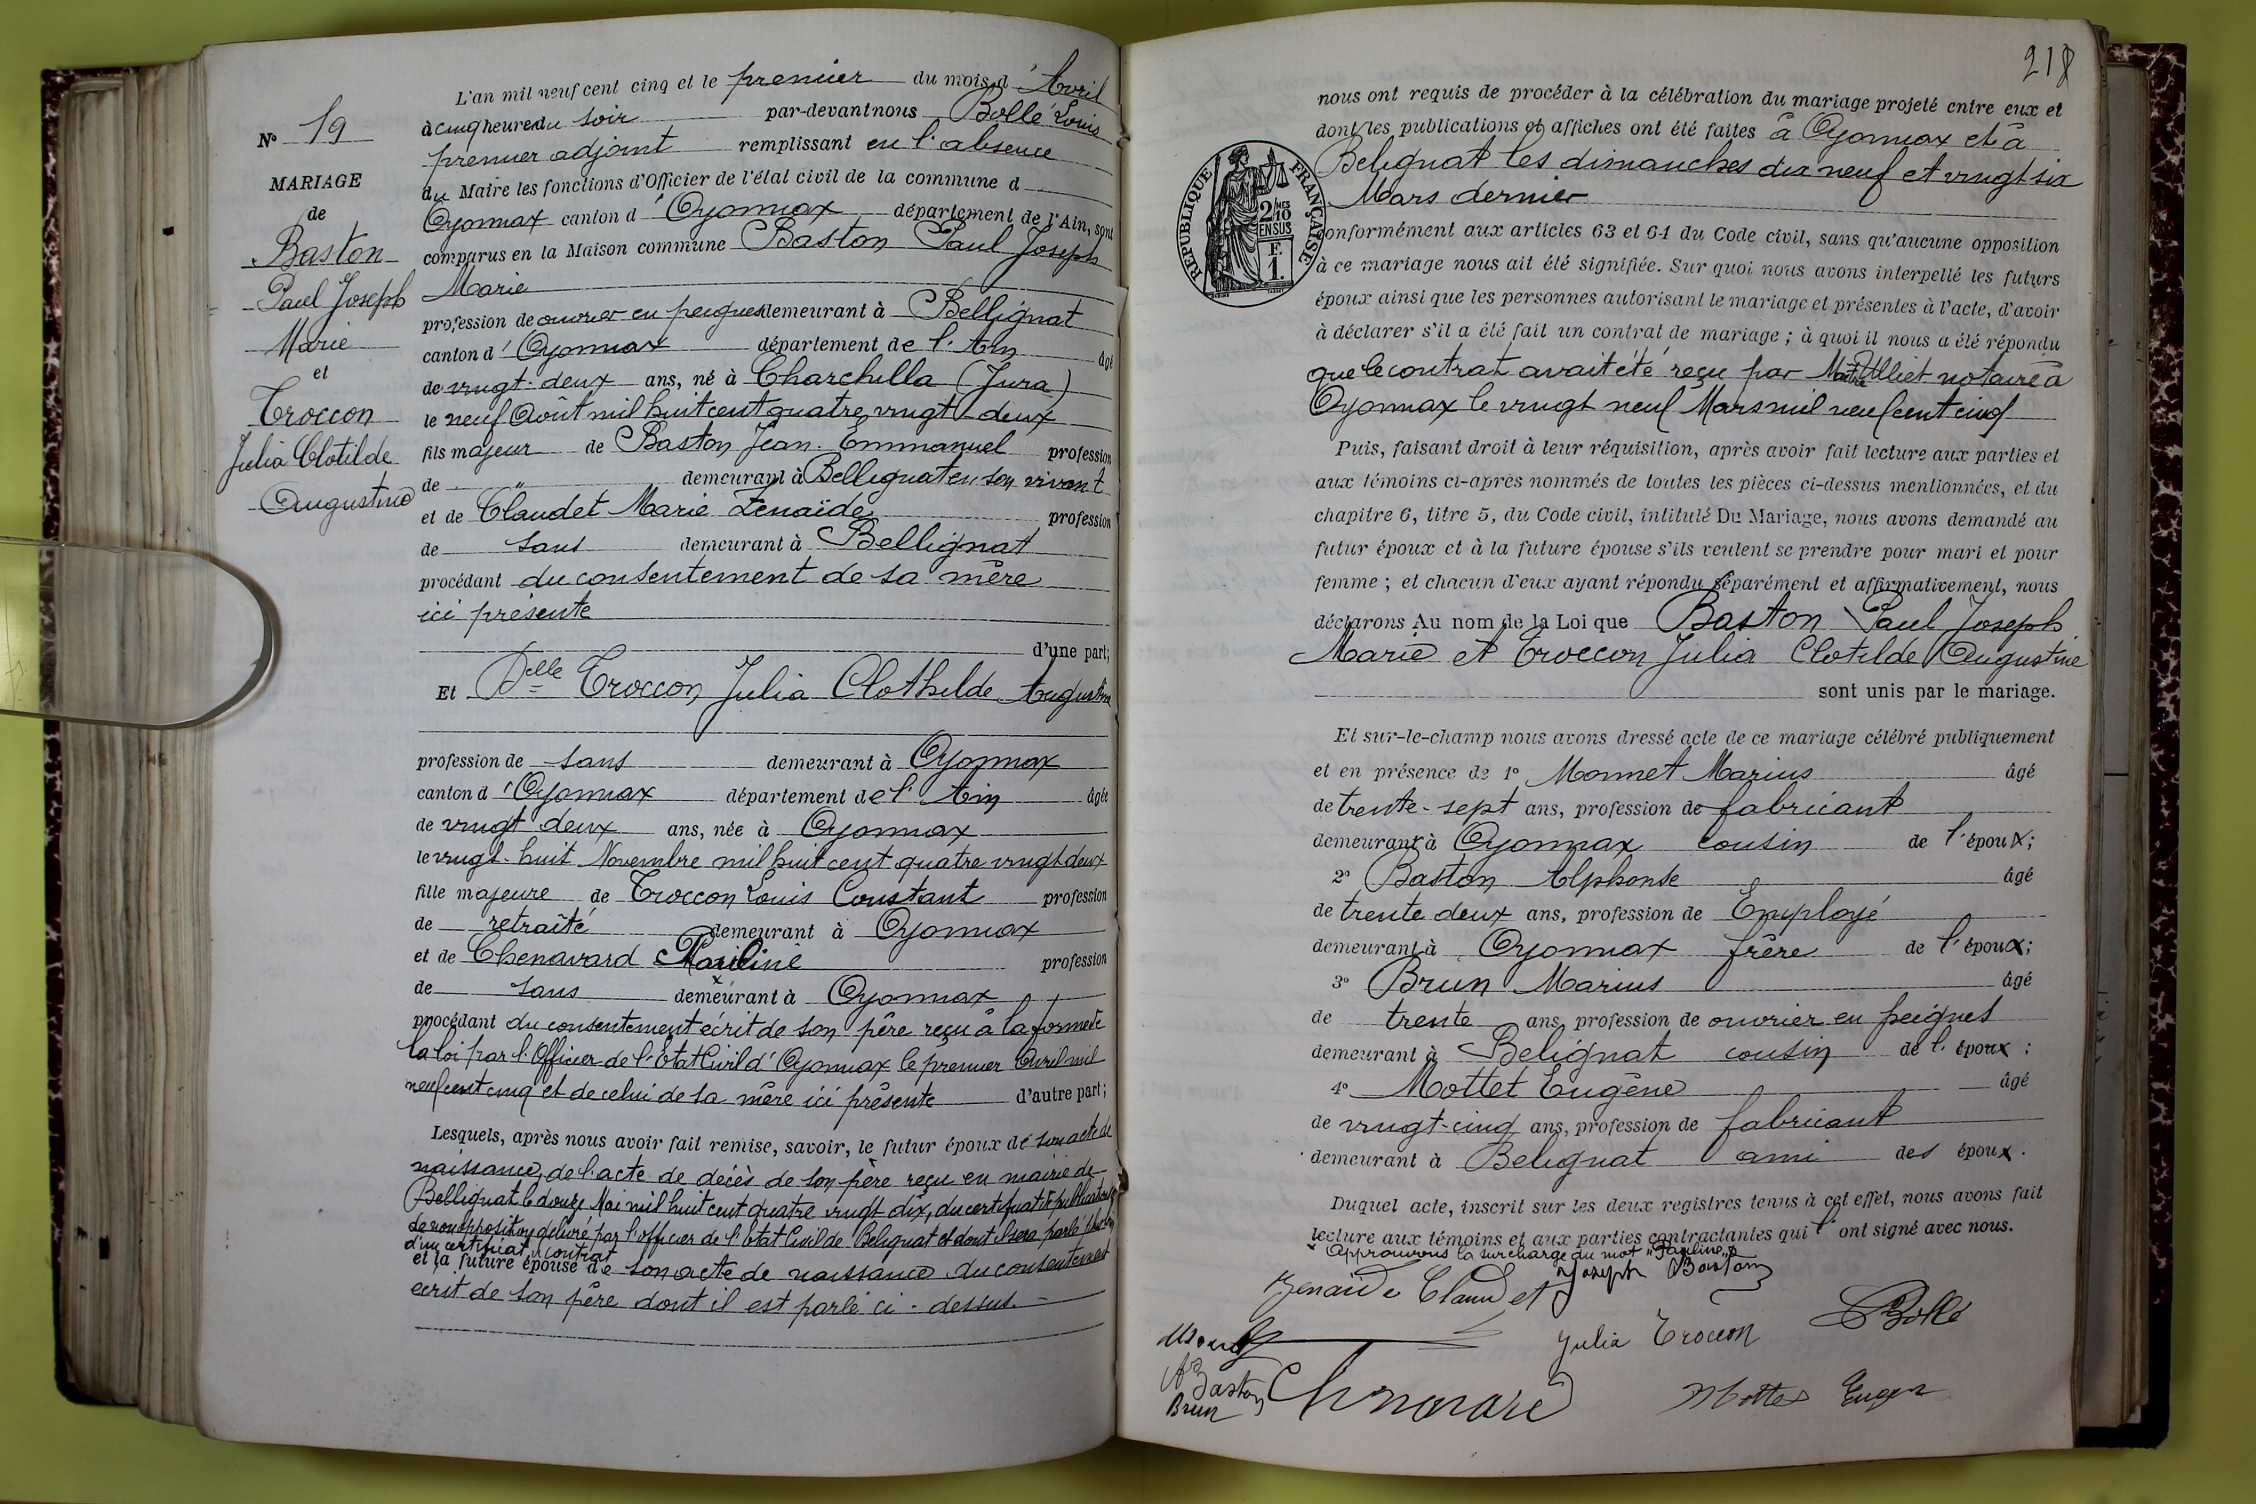 N° 19
MARIAGE
de
Baston
Paul Joseph
Marie
et
Troccon
Julia Clotilde
Augustine
L'an mil neuf cent cinq et le premier du mois d'Avril
à cinq heures du soir par-devant nous Bollé Louis
premier adjoint remplissant en l'absence
du Maire les fonctions d'Officier de l'état civil de la commune d
Oyonnax canton d'Oyonnax département de l'Ain, sont
comparus en la Maison commune Baston Paul Joseph
Marie
profession de ouvrier en peignes demeurant à Bellignat
canton d'Oyonnax département de l'Ain âgé
de vingt-deux ans, né à Charchilla (Jura)
le neuf Août mil huit cent quatre vingt-deux
fils majeur de Baston Jean-Emmanuel profession
de " demeurant à Bellignat en son vivant
et de Claudet Marie Zénaïde profession
de sans demeurant à Bellignat
procédant du consentement de sa mère
ici présente
d'une part;
Et Delle Troccon Julia Clothilde Augustine
profession de sans demeurant à Oyonnax
canton d'Oyonnax département de l'Ain âgée
de vingt deux ans, née à Oyonnax
le vingt-huit Novembre mil huit cent quatre vingt deux
fille majeure de Troccon Louis Constant profession
de retraité demeurant à Oyonnax
et de Chenavard Pauline profession
de sans demeurant à Oyonnax
procédant du consentement écrit de son père reçu à la forme de
la loi par l'Officier de l'Etat Civil d'Oyonnax le premier Avril mil
neuf cent cinq et de celui de sa mère ici présente d'autre part;
Lesquels, après nous avoir fait remise, savoir, le futur époux de son acte de
naissance, de l'acte de décès de son père reçu en mairie de
Bellignat le douze Mai mil huit cent quatre vingt dix, du certificat de publication et
de non opposition délivré par l'officier de l'Etat Civil de Belignat et dont il sera parlé
d'un certificat contrat
et la future épouse de son acte de naissance du consentement
écrit de son père dont il est parlé ci-dessus.
218
nous ont requis de procéder à la célébration du mariage projeté entre eux et
dont les publications et affiches ont été faites à Oyonnax et à
Belignat les dimanches dix neuf et vingt six
Mars dernier
RÉPUBLIQUE FRANÇAISE
2/MES 10
EN SUS
F.
1.
conformément aux articles 63 et 64 du Code civil, sans qu'aucune opposition
à ce mariage nous ait été signifiée. Sur quoi nous avons interpellé les futurs
époux ainsi que les personnes autorisant le mariage et présentes à l'acte, d'avoir
à déclarer s'il a été fait un contrat de mariage ; à quoi il nous a été répondu
que le contrat avait été reçu par Maître Alliet notaire à
Oyonnax le vingt neuf Mars mil neuf cent cinq
Puis, faisant droit à leur réquisition, après avoir fait lecture aux parties et
aux témoins ci-après nommés de toutes les pièces ci-dessus mentionnées, et du
chapitre 6, titre 5, du Code civil, intitulé Du Mariage, nous avons demandé au
futur époux et à la future épouse s'ils veulent se prendre pour mari et pour
femme ; et chacun d'eux ayant répondu séparément et affirmativement, nous
déclarons Au nom de la Loi que Baston Paul Joseph
Marie et Troccon Julia Clotilde Augustine
sont unis par le mariage.
Et sur-le-champ nous avons dressé acte de ce mariage célébré publiquement
et en présence de 1° Monnet Marius âgé
de trente-sept ans, profession de fabricant
demeurant à Oyonnax cousin de l'époux;
2° Baston Alphonse âgé
de trente deux ans, profession de Employé
demeurant à Oyonnax frère de l'époux;
3° Brun Marius âgé
de trente ans, profession de ouvrier en peignes
demeurant à Belignat cousin de l'époux ;
4° Mottet Eugène âgé
de vingt-cinq ans, profession de fabricant
demeurant à Belignat ami des époux.
Duquel acte, inscrit sur les deux registres tenus à cet effet, nous avons fait
lecture aux témoins et aux parties contractantes qui ont signé avec nous.
x Approuvons la surcharge du mot "Pauline"
Joseph Baston
Zenaide Claudet
Bollé
Julia Troccon
A Baston
Brun
Mottet Eugen